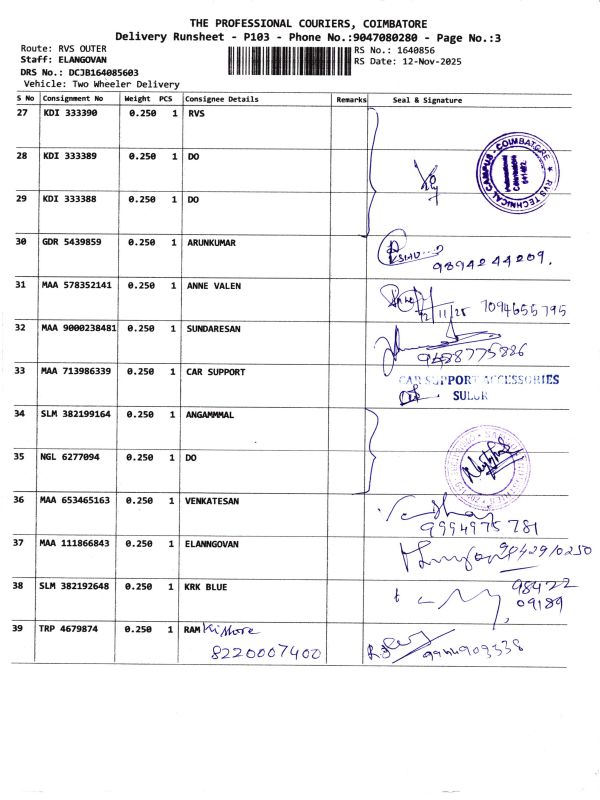 THE PROFESSIONAL COURIERS, COIMBATORE
Delivery Runsheet - P103 - Phone No.:9047080280 - Page No.:3
Route: RVS OUTER
RS No.: 1640856
Staff: ELANGOVAN
RS Date: 12-Nov-2025
DRS No.: DCJB164085603
Vehicle: Two Wheeler Delivery
S No Consignment No Weight PCS Consignee Details Remarks Seal & Signature
27 KDI 333390 0.250 1 RVS
28 KDI 333389 0.250 1 DO
RVS TECHNICAL CAMPUS - COIMBATORE
29 KDI 333388 0.250 1 DO
30 GDR 5439859 0.250 1 ARUNKUMAR
9894244209.
31 MAA 578352141 0.250 1 ANNE VALEN
12/11/25 7094655795
32 MAA 9000238481 0.250 1 SUNDARESAN
9488775886
33 MAA 713986339 0.250 1 CAR SUPPORT
CAR SUPPORT ACCESSORIES
SULUR
34 SLM 382199164 0.250 1 ANGAMMMAL
35 NGL 6277094 0.250 1 DO
36 MAA 653465163 0.250 1 VENKATESAN
9994975781
37 MAA 111866843 0.250 1 ELANNGOVAN
9842910250
38 SLM 382192648 0.250 1 KRK BLUE
98422
09189
39 TRP 4679874 0.250 1 RAM Kishore
8220007400
9944903338